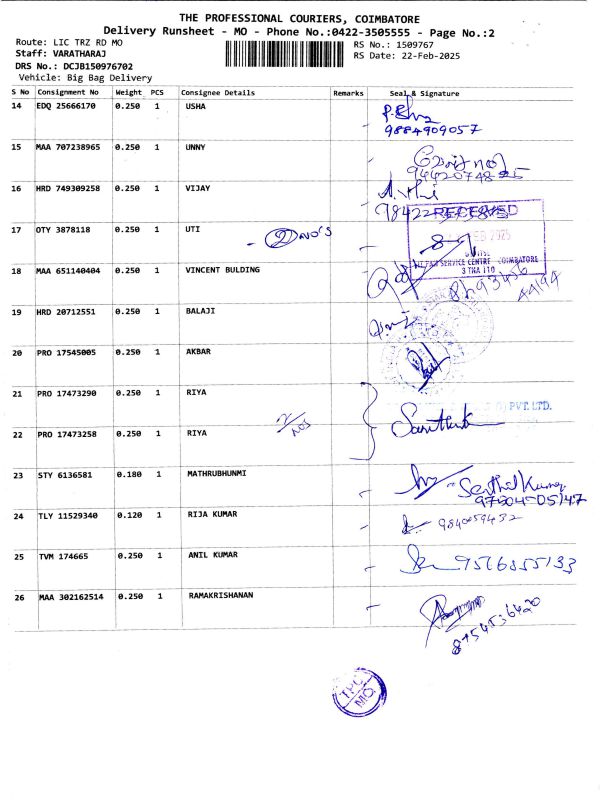 THE PROFESSIONAL COURIERS, COIMBATORE
Delivery Runsheet - MO - Phone No.:0422-3505555 - Page No.:2
Route: LIC TRZ RD MO
RS No.: 1509767
Staff: VARATHARAJ
RS Date: 22-Feb-2025
DRS No.: DCJB150976702
Vehicle: Big Bag Delivery
S No Consignment No Weight PCS Consignee Details Remarks Seal & Signature
14 EDQ 25666170 0.250 1 USHA
9884909057
15 MAA 707238965 0.250 1 UNNY
16 HRD 749309258 0.250 1 VIJAY
RECEIVED
17 OTY 3878118 0.250 1 UTI 2 NO'S
FEB 2025
SERVICE CENTRE COIMBATORE
18 MAA 651140404 0.250 1 VINCENT BULDING
19 HRD 20712551 0.250 1 BALAJI
20 PRO 17545005 0.250 1 AKBAR
21 PRO 17473290 0.250 1 RIYA
PVT. LTD.
22 PRO 17473258 0.250 1 RIYA 2/NOS
23 STY 6136581 0.180 1 MATHRUBHUNMI
Senthil Kumar
24 TLY 11529340 0.120 1 RIJA KUMAR
9840059432
25 TVM 174665 0.250 1 ANIL KUMAR
9566555133
26 MAA 302162514 0.250 1 RAMAKRISHANAN
8754536420
TPC
MO